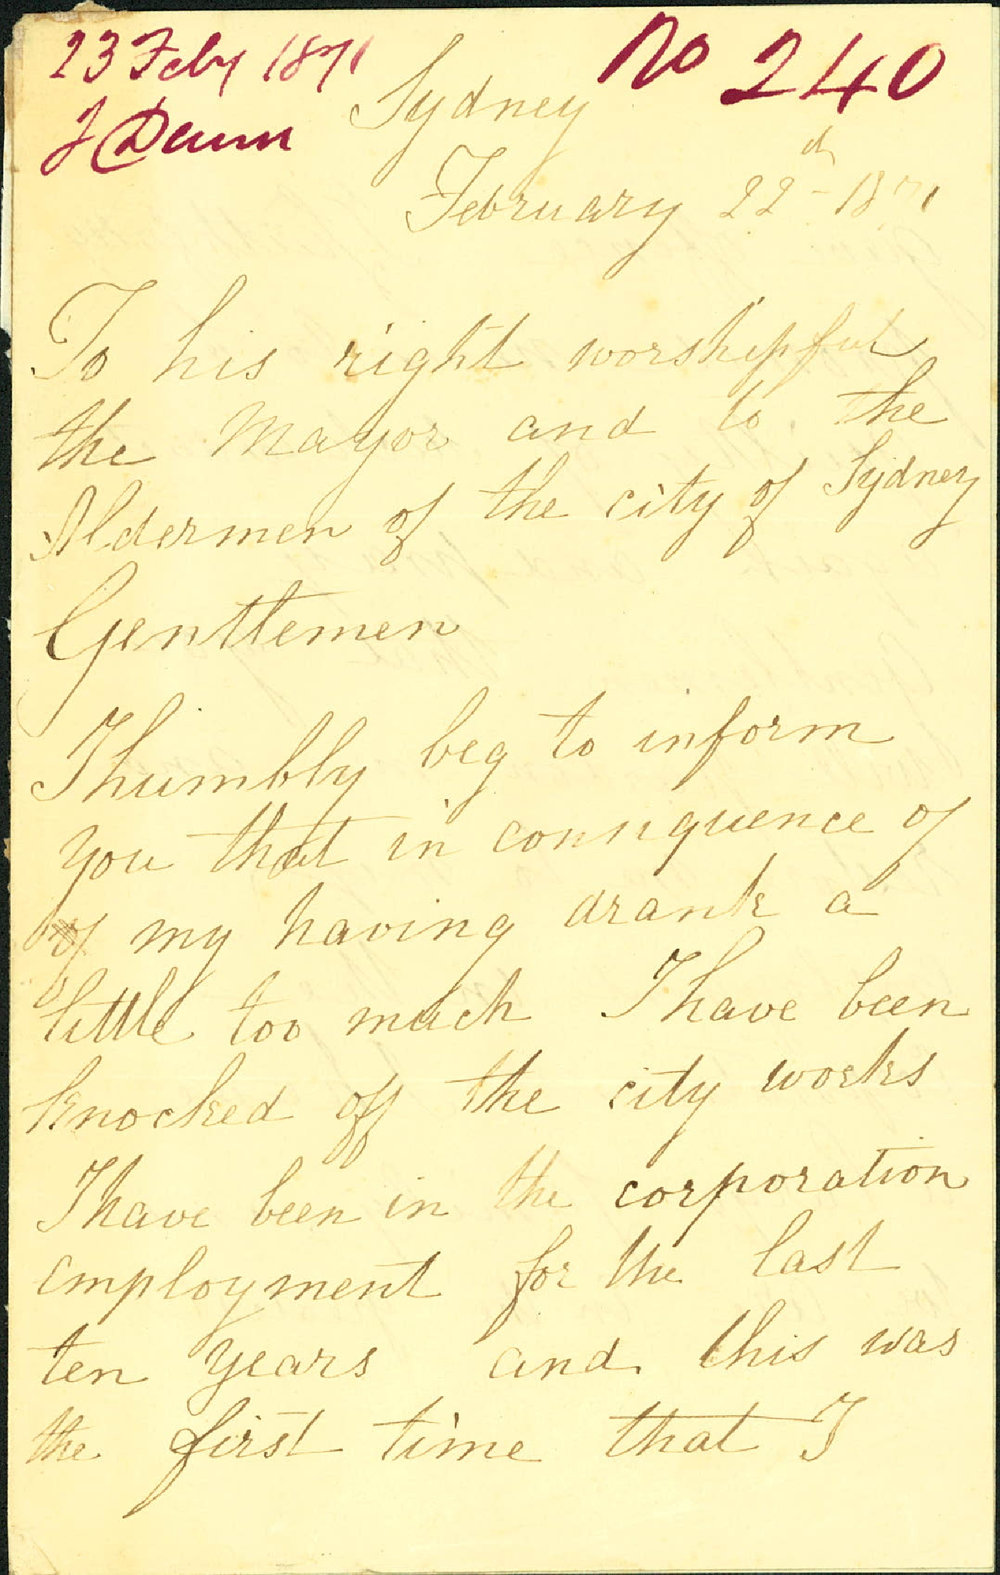 23 Feby 1871
No 240
J Dunn
Sydney
February 22d - 1871
To his right worshipful
the Mayor and to the
Aldermen of the city of Sydney
Gentlemen
I humbly beg to inform
you that in consiquence of
of my having drank a
little too much I have been
knocked off the city works
I have been in the corporation
employment for the last
ten years and this was
the first time that I